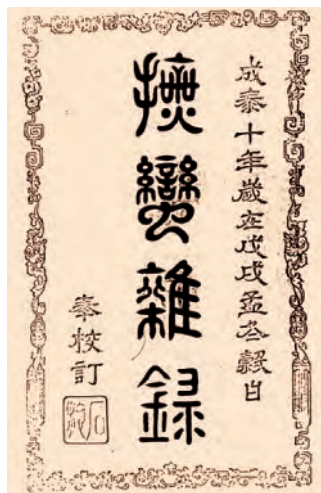 成泰十年歲在戊戌孟冬穀日
撫蠻雜錄
奉校訂